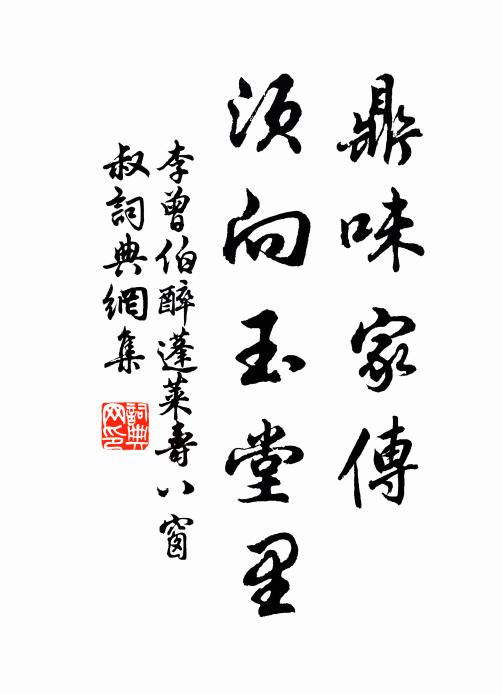 鼎味家傳
須向玉堂里
李曾伯醉蓬萊壽八窗
叔詞典網集
詞典
网印